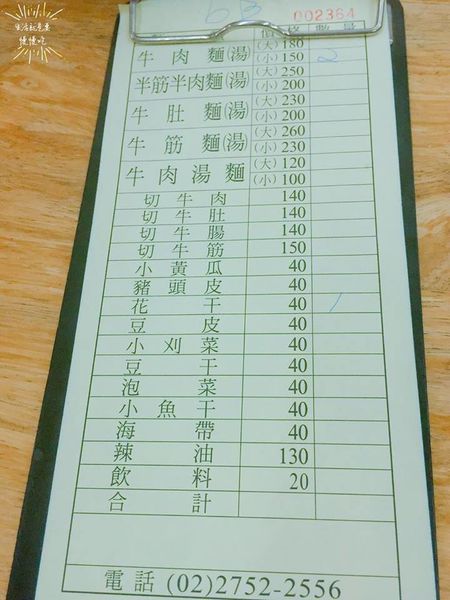 生活就是要
慢慢吃
63
002364
價格 數量
牛肉麵(湯) (大) 180
(小) 150 2
半筋半肉麵(湯) (大) 250
(小) 200
牛肚麵(湯) (大) 230
(小) 200
牛筋麵(湯) (大) 260
(小) 230
牛肉湯麵 (大) 120
(小) 100
切牛肉 140
切牛肚 140
切牛腸 140
切牛筋 150
小黃瓜 40
豬頭皮 40
花干 40 1
豆皮 40
小刈菜 40
豆干 40
泡菜 40
小魚干 40
海帶 40
辣油 130
飲料 20
合計
電話 (02)2752-2556